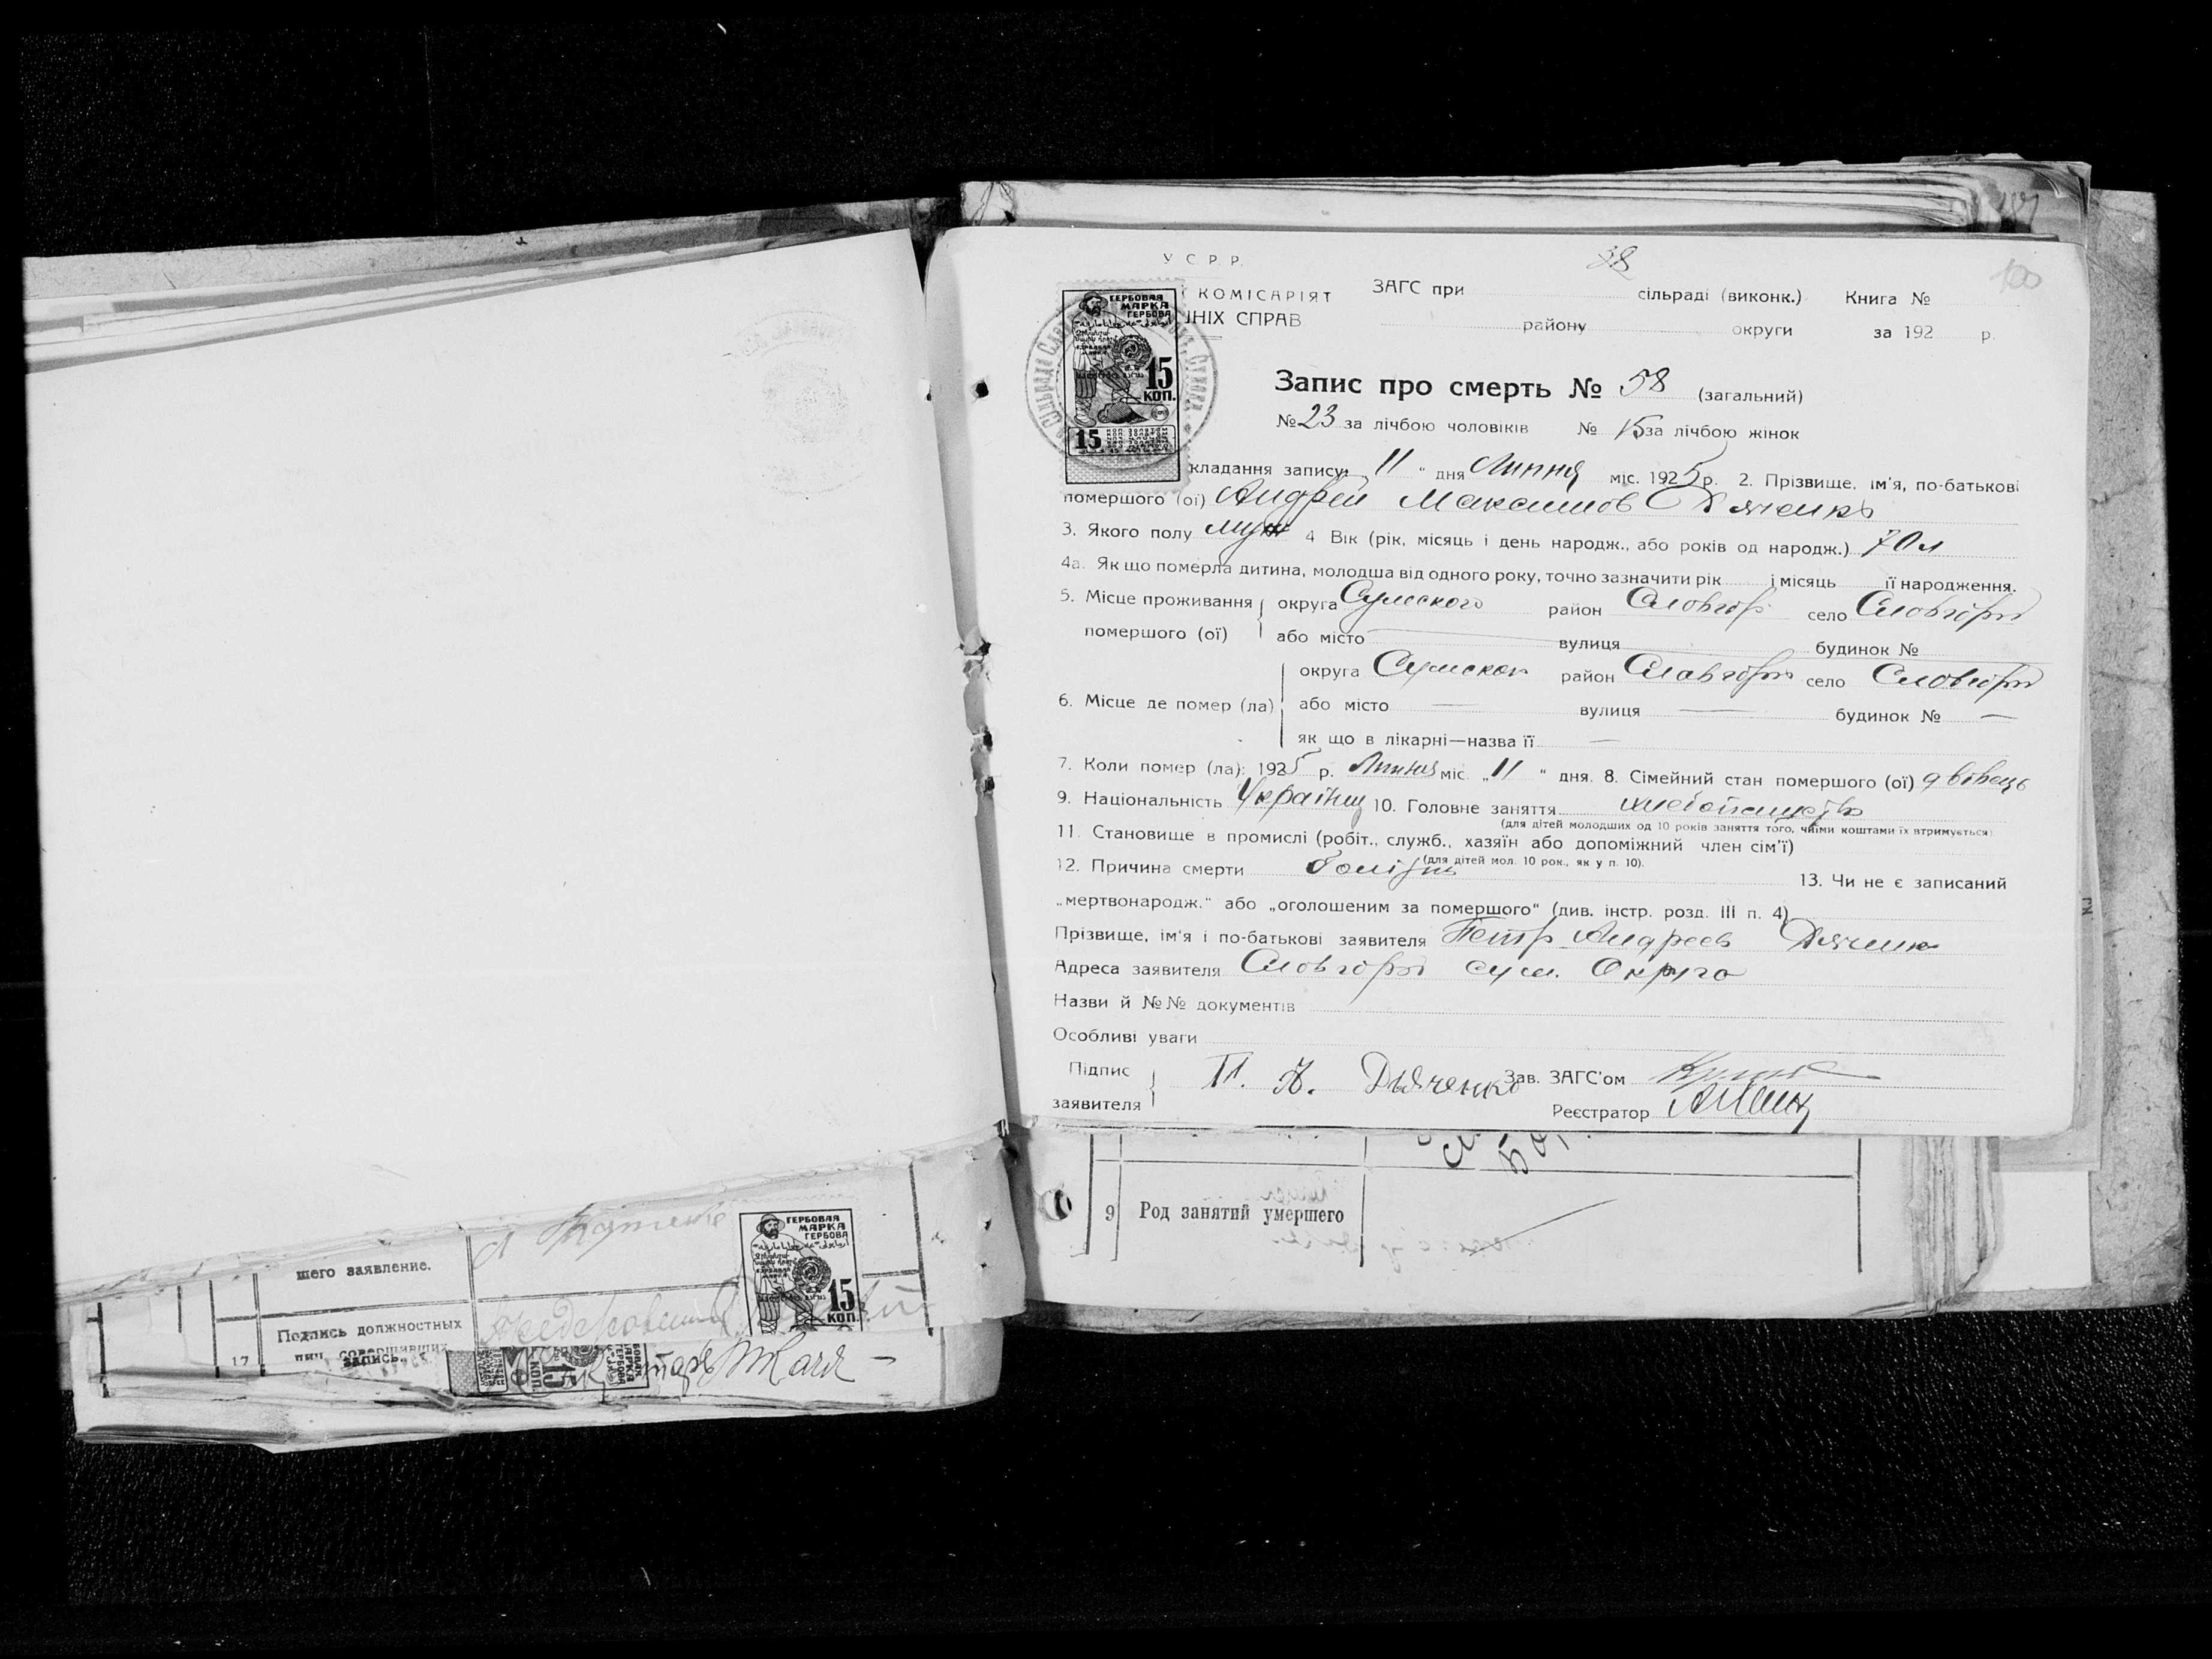 У С Р Р.
38
100
КОМІСАРІЯТ
ЗАГС при сільраді (виконк.) Книга №
НІХ СПРАВ
району округи за 192 р.
ГЕРБОВАЯ
МАРКА
ГЕРБОВА
15
КОП.
15
Запис про смерть № 58 (загальний)
№ 23 за лічбою чоловіків № 15 за лічбою жінок
кладання запису: 11 " дня Липня міс. 1925 р. 2. Прізвище, ім'я, по-батькові
помершого (ої) Андрей Максимов Дяченко
3. Якого полу муж 4 Вік (рік, місяць і день народж., або років од народж.) 70 л
4а. Як що померла дитина, молодша від одного року, точно зазначити рік і місяць її народження.
5. Місце проживання округа Сумского район Славгор село Славгород
помершого (ої) або місто вулиця будинок №
округа Сумской район Славгород село Славгород
6. Місце де помер (ла) або місто — вулиця — будинок № —
як що в лікарні—назва її —
7. Коли помер (ла): 1925 р. Липня міс. „11 “ дня. 8. Сімейний стан помершого (ої) вдівець
9. Національність Українец 10. Головне заняття хлебопашество
(для дітей молодших од 10 років заняття того, чиїми коштами їх втримується)
11. Становище в промислі (робіт., служб., хазяїн або допоміжний член сім'ї)
(для дітей мол. 10 рок., як у п. 10).
12. Причина смерти 13. Чи не є записаний
„мертвонародж.“ або „оголошеним за помершого“ (див. інстр. розд. III п. 4)
Прізвище, ім'я і по-батькові заявителя Петр Андреев Дяченко
Адреса заявителя Славгород Сум. Округа
Назви й №№ документів
Особливі уваги
Підпис
заявителя
П. А. Дьяченко
Зав. ЗАГС'ом
Реєстратор
9 Род занятий умершего
шего заявление.
ГЕРБОВАЯ
МАРКА
ГЕРБОВА
15
КОП.
17 Подпись должностных
лиц, совершивших
запись.
15
КОП.